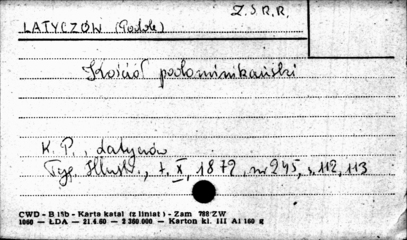 Z.S.R.R.
LATYCZÓW (Podole)
Kościół podominikański
K. P., Latyczów
Tyg. Illustr., t. X, 1872, nr 245, s. 112, 113
CWD - B 15b - Karta katal (z liniat) - Zam 788 ZW
1060 — ŁDA — 21.4.60 — 2 360.000 — Karton kl. III A1 160 g